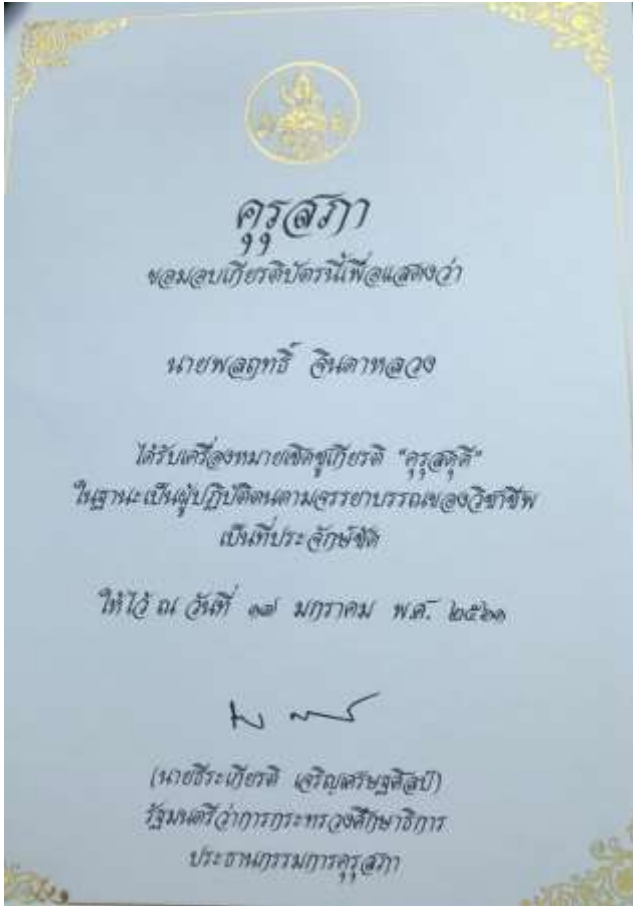 คุรุสภา
ขอมอบเกียรติบัตรนี้เพื่อแสดงว่า
นายพลฤทธิ์ จินดาหลวง
ได้รับเครื่องหมายเชิดชูเกียรติ "คุรุสดุดี"
ในฐานะเป็นผู้ปฏิบัติตนตามจรรยาบรรณของวิชาชีพ
เป็นที่ประจักษ์ชัด
ให้ไว้ ณ วันที่ ๑๗ มกราคม พ.ศ. ๒๕๖๑
(นายธีระเกียรติ เจริญเศรษฐศิลป์)
รัฐมนตรีว่าการกระทรวงศึกษาธิการ
ประธานกรรมการคุรุสภา